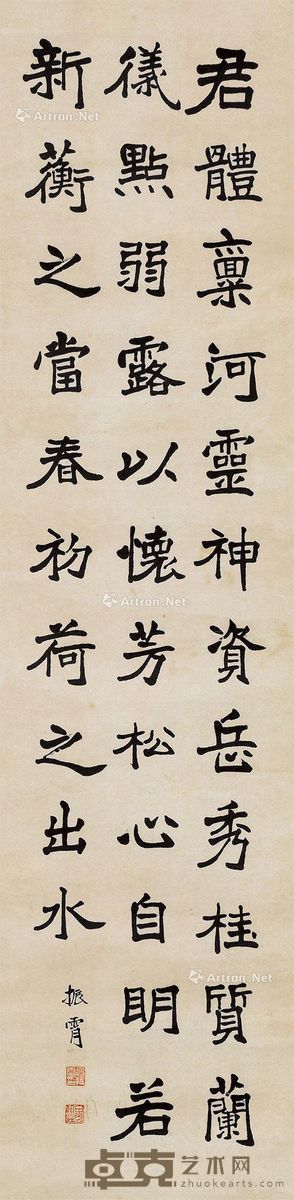 君體稟河靈神資岳秀桂質蘭
儀點弱露以懷芳松心自明若
新蘅之當春初荷之出水
振霄
Artron.Net
Artron.Net
Artron.Net
Artron.Net
卓克艺术网
www.zhuokearts.com